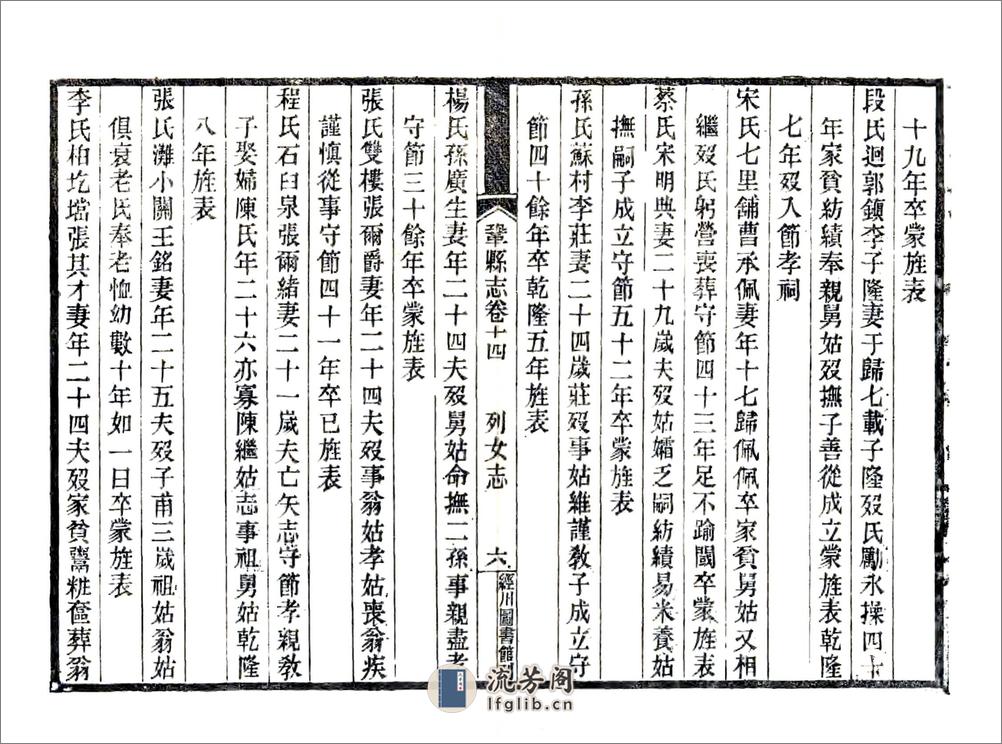 十九年卒蒙旌表
段氏迴郭鎮李子隆妻于歸七載子隆歿氏勵氷操四十
年家貧紡績奉親舅姑歿撫子善從成立蒙旌表乾隆
七年歿入節孝祠
宋氏七里舖曹承佩妻年十七歸佩佩卒家貧舅姑又相
繼歿氏躬營喪葬守節四十三年足不踰閾卒蒙旌表
蔡氏宋明典妻二十九歲夫歿姑孀乏嗣紡績易米養姑
撫嗣子成立守節五十二年卒蒙旌表
孫氏蘇村李莊妻二十四歲莊歿事姑維謹敎子成立守
節四十餘年卒乾隆五年旌表
鞏縣志卷十四 列女志 六 經川圖書館刊
楊氏孫廣生妻年二十四夫歿舅姑命撫二孫事親盡孝
守節三十餘年卒蒙旌表
張氏雙樓張爾爵妻年二十四夫歿事翁姑孝姑喪翁疾
謹慎從事守節四十一年卒已旌表
程氏石臼泉張爾緒妻二十一歲夫亡矢志守節孝親敎
子娶婦陳氏年二十六亦寡陳繼姑志事祖舅姑乾隆
八年旌表
張氏灘小關王銘妻年二十五夫歿子甫三歲祖姑翁姑
俱衰老氏奉老恤幼數十年如一日卒蒙旌表
李氏柏圪壋張其才妻年二十四夫歿家貧鬻粧奩葬翁
流芳阁
lfglib.cn